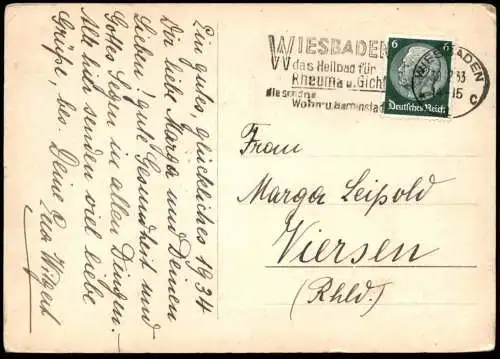 Ein gutes, glückliches 1934
Dir liebe Marga und Deinen
Lieben! gute Gesundheit und
Gottes Segen in allen Dingen.
Alle hier senden viel liebe
Grüße, bes. Deine
WIESBADEN
das Heilbad für
Rheuma u. Gicht
die schöne
Wohn u.
6 6
Deutsches Reich
WIESBADEN
33
15
c
Frau
Marga Leipold
Viersen
(Rhld.)